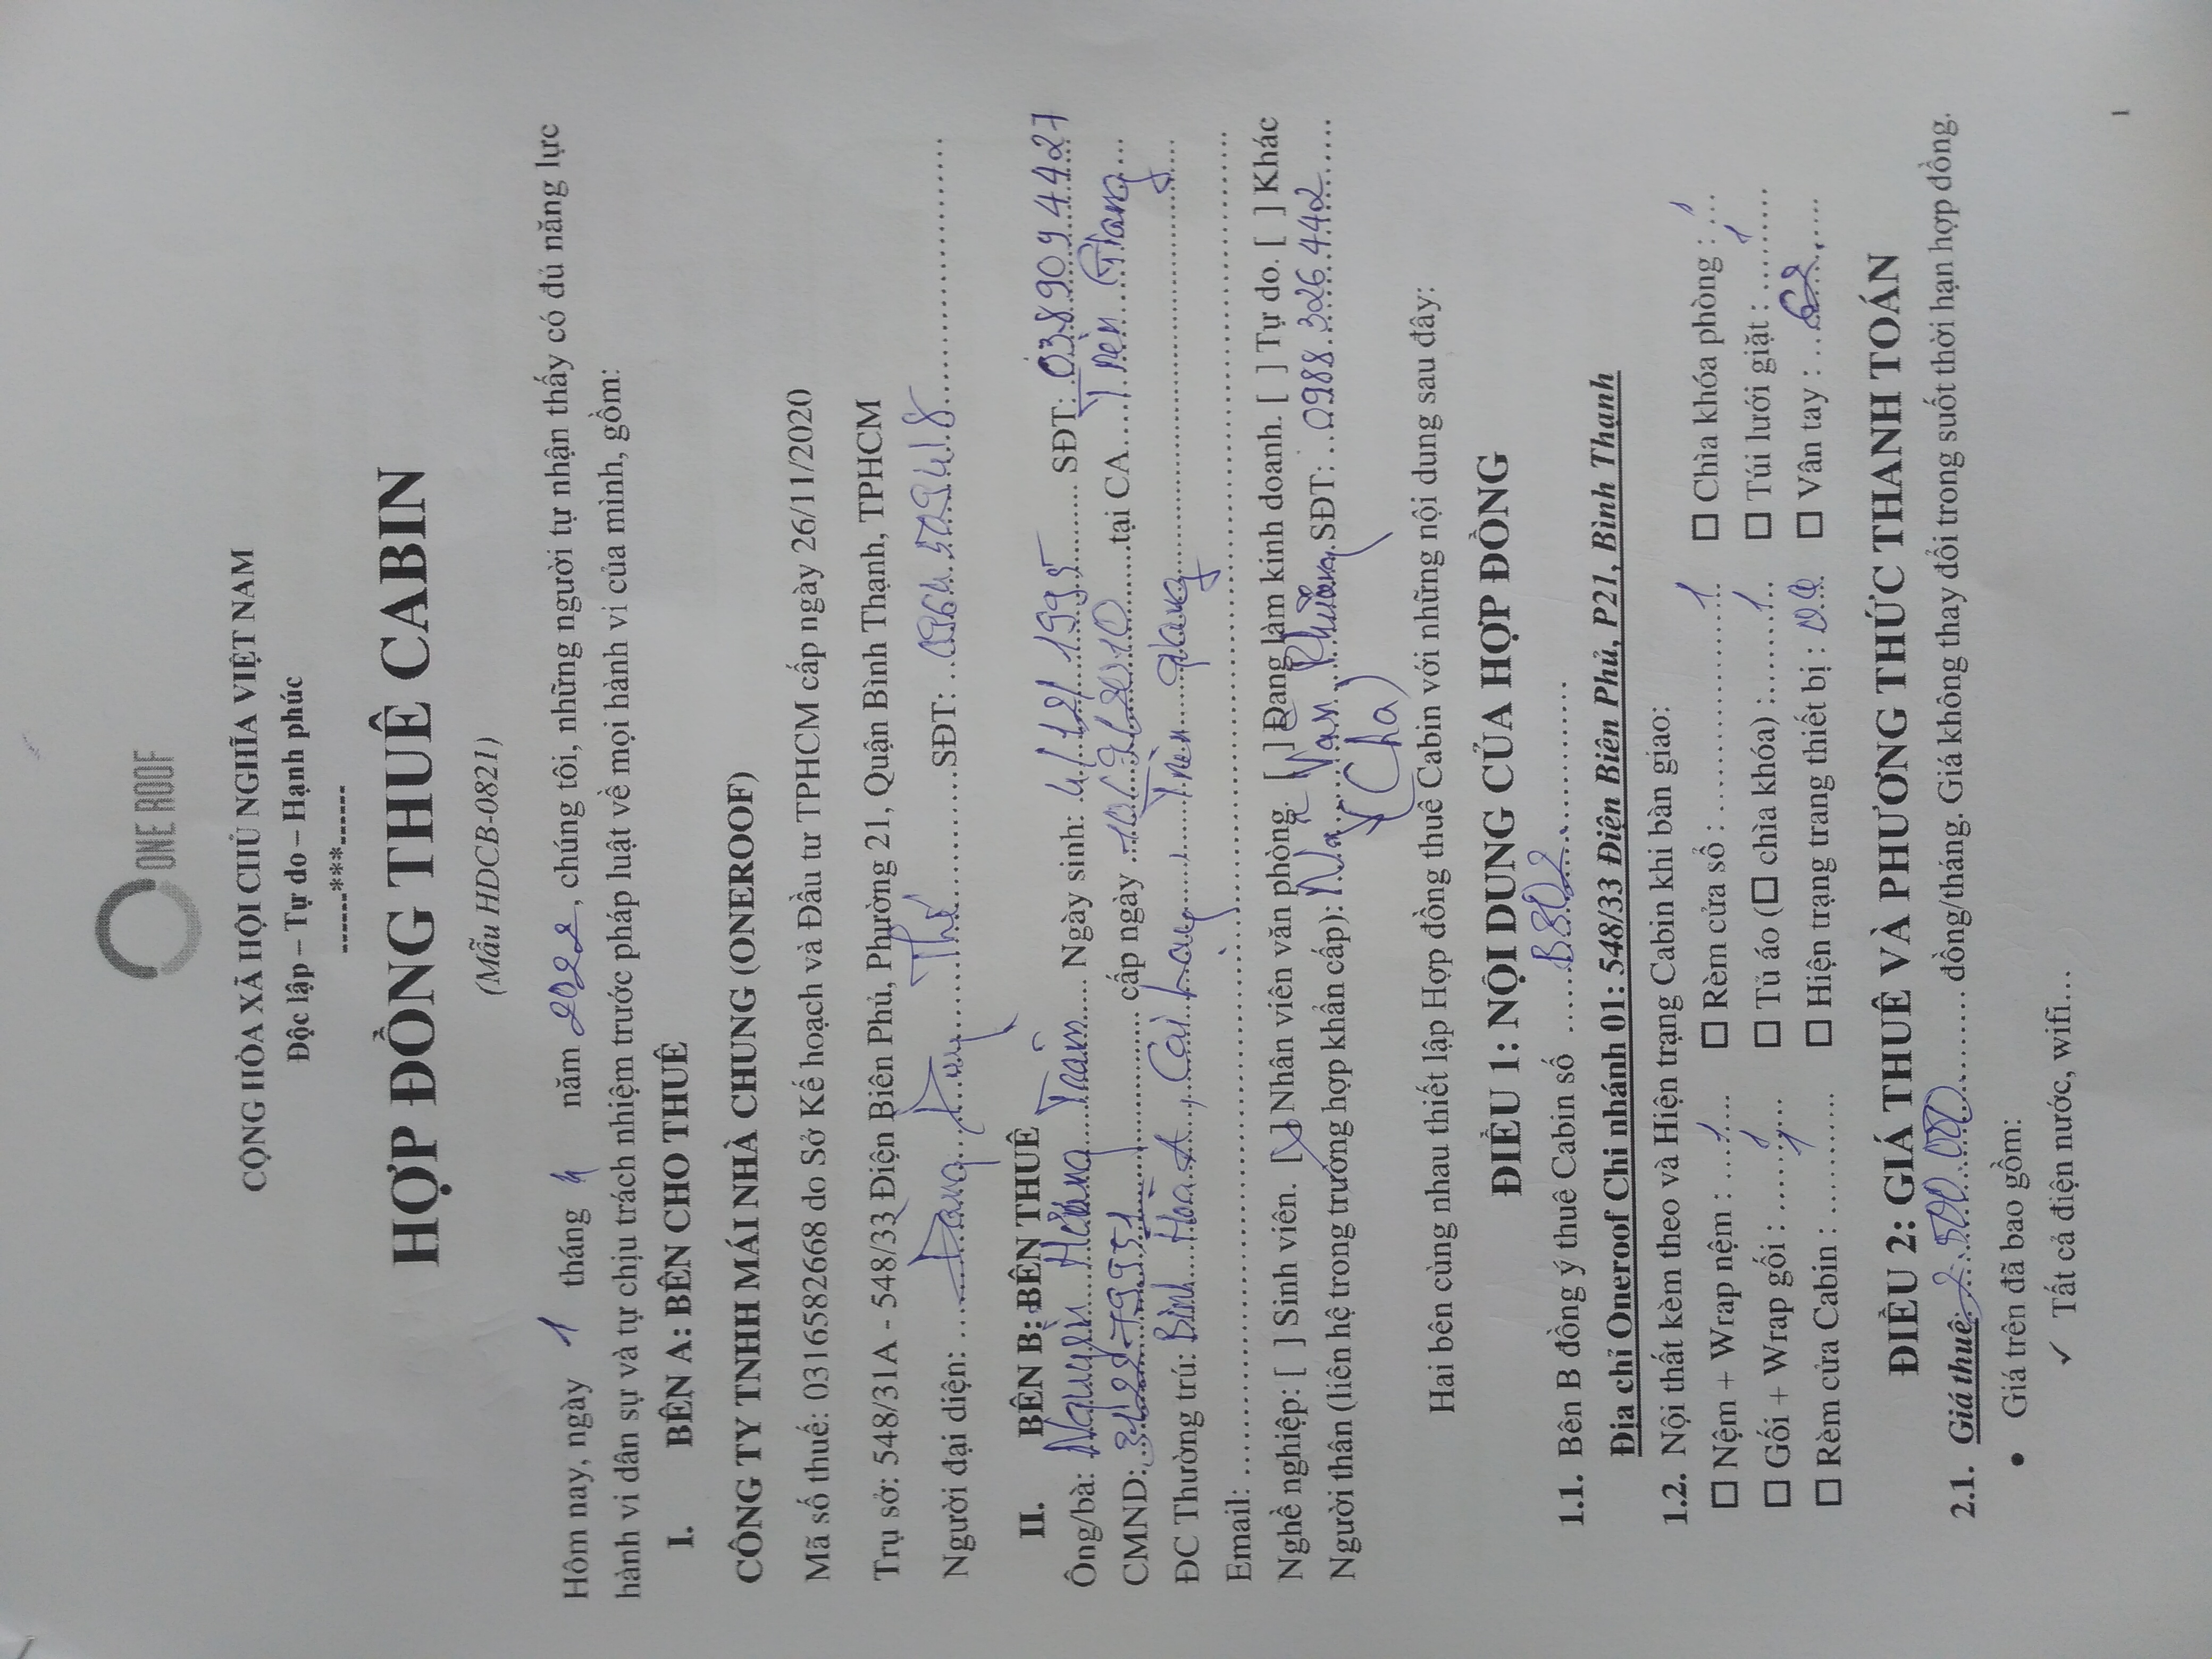 ONE ROOF
CỘNG HÒA XÃ HỘI CHỦ NGHĨA VIỆT NAM
Độc lập – Tự do – Hạnh phúc
------***------
HỢP ĐỒNG THUÊ CABIN
(Mẫu HDCB-0821)
Hôm nay, ngày 1 tháng 4 năm 2022, chúng tôi, những người tự nhận thấy có đủ năng lực
hành vi dân sự và tự chịu trách nhiệm trước pháp luật về mọi hành vi của mình, gồm:
I. BÊN A: BÊN CHO THUÊ
CÔNG TY TNHH MÁI NHÀ CHUNG (ONEROOF)
Mã số thuế: 0316582668 do Sở Kế hoạch và Đầu tư TPHCM cấp ngày 26/11/2020
Trụ sở: 548/31A - 548/33 Điện Biên Phủ, Phường 21, Quận Bình Thạnh, TPHCM
Người đại diện: Thư SĐT:
II. BÊN B: BÊN THUÊ
Ông/bà: Nguyễn Hoàng Ngày sinh: 4/12/1995 SĐT: 0389094427
CMND: cấp ngày 10/9/2010 tại CA Tiền Giang
ĐC Thường trú: Bình Hoà A, Cai Lậy, Tiền giang
Email:
Nghề nghiệp: [ ] Sinh viên. [ ] Nhân viên văn phòng. [ ] Đang làm kinh doanh. [ ] Tự do. [ ] Khác
Người thân (liên hệ trong trường hợp khẩn cấp): Văn Phương SĐT: 0988.326.442
(Cha)
Hai bên cùng nhau thiết lập Hợp đồng thuê Cabin với những nội dung sau đây:
ĐIỀU 1: NỘI DUNG CỦA HỢP ĐỒNG
1.1. Bên B đồng ý thuê Cabin số
Địa chỉ Oneroof Chi nhánh 01: 548/33 Điện Biên Phủ, P21, Bình Thạnh
1.2. Nội thất kèm theo và Hiện trạng Cabin khi bàn giao:
☐ Nệm + Wrap nệm : 1 ☐ Rèm cửa sổ : 1 ☐ Chìa khóa phòng : 1
☐ Gối + Wrap gối : 1 ☐ Tủ áo (☐ chìa khóa) : 1 ☐ Túi lưới giặt : 1
☐ Rèm cửa Cabin : ☐ Hiện trạng trang thiết bị : ☐ Vân tay :
ĐIỀU 2: GIÁ THUÊ VÀ PHƯƠNG THỨC THANH TOÁN
2.1. Giá thuê: 2.500.000 đồng/tháng. Giá không thay đổi trong suốt thời hạn hợp đồng.
• Giá trên đã bao gồm:
✓ Tất cả điện nước, wifi…
1